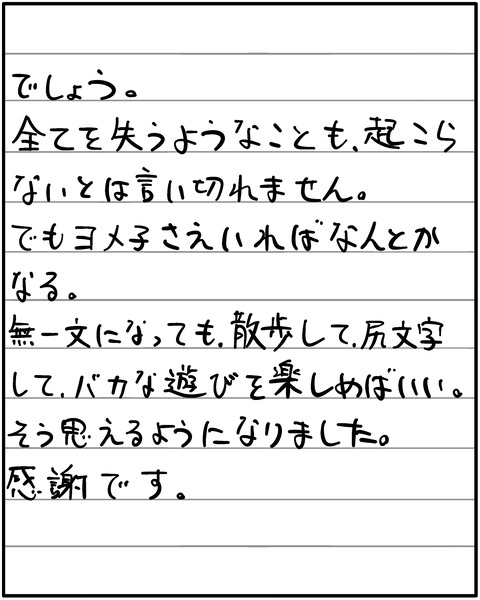 でしょう。
全てを失うようなことも、起こら
ないとは言い切れません。
でもヨメ子さえいればなんとか
なる。
無一文になっても、散歩して、尻文字
して、バカな遊びを楽しめばいい。
そう思えるようになりました。
感謝です。